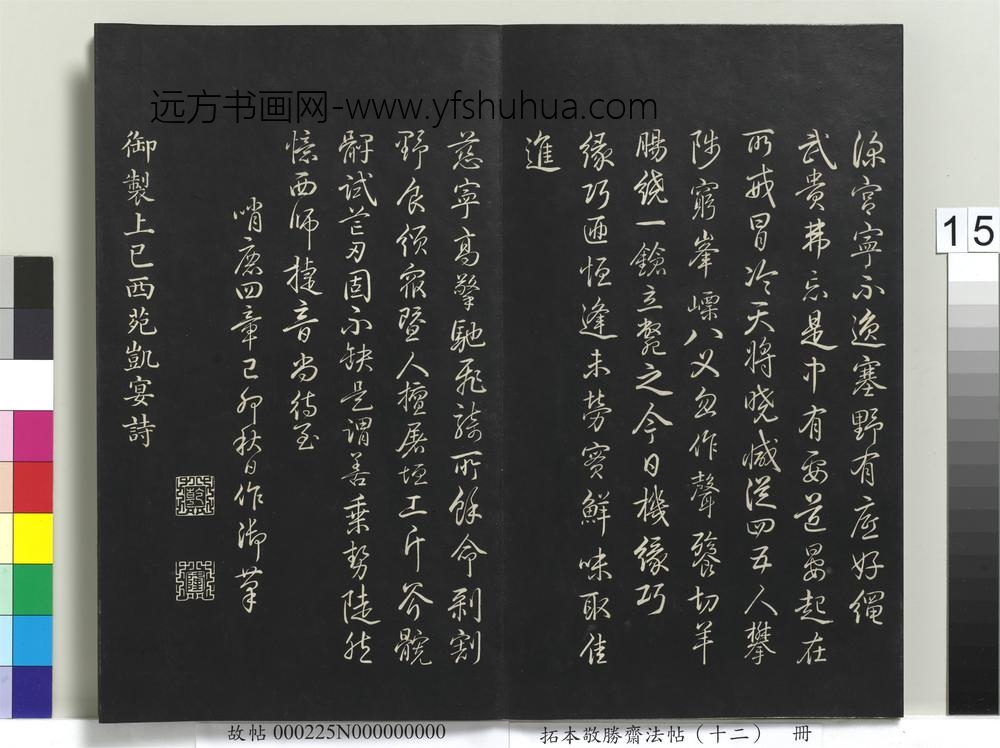 远方书画网-www.yfshuhua.com
深宮寧不逸塞野有底好繩
武貴弗忘是中有要道晏起在
所戒冒冷天將曉減從四五人攀
陟窮峯八叉忽作聲切羊
腸繞一鎗立斃之今日機緣巧
緣巧匪恒逢未勞實鮮味取佳
進
慈寧高擎馳飛騎所餘命剥割
野食頒眾暨人擅屠垣工斤斧髖
髀試芒刃固不缺是謂善乗勢陡然
憶西師捷音尚待至
哨鹿四章己卯秋日作御筆
乾
隆
御製上巳西苑凱宴詩
15
故帖 000225N000000000
拓本敬勝齋法帖（十二） 冊